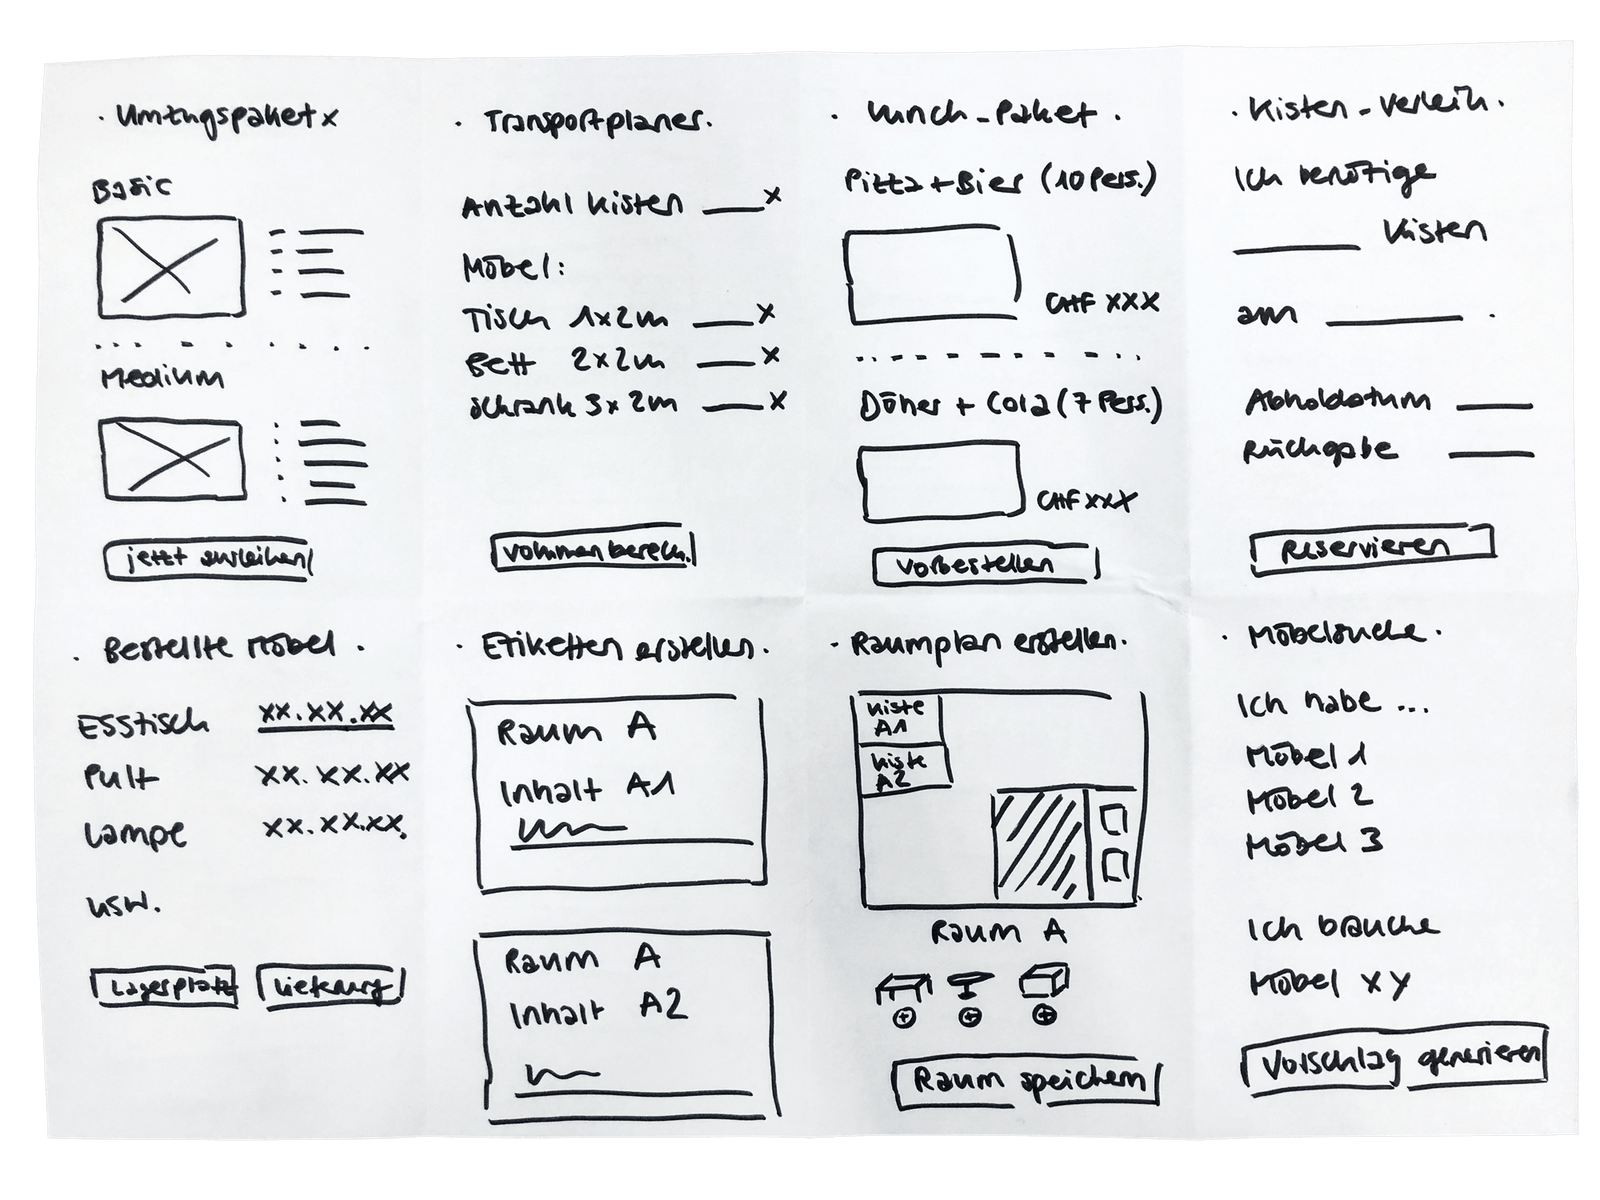 · Umzugspaket x
Basic
Medium
jetzt ausleihen
· Transportplaner.
Anzahl Kisten ___x
Möbel:
Tisch 1x2m ___x
Bett 2x2m ___x
Schrank 3x2m ___x
Volumen berech.
· Lunch-Paket .
Pizza + Bier (10 Pers.)
CHF XXX
Döner + Cola (7 Pers.)
CHF XXX
Vorbestellen
· Kisten-Verleih.
Ich benötige
___ Kisten
am ___ .
Abholdatum ___
Rückgabe ___
Reservieren
· Bestellte Möbel .
Esstisch xx.xx.xx
Pult xx.xx.xx
Lampe xx.xx.xx.
usw.
Lagerplatz Lieferung
· Etiketten erstellen.
Raum A
Inhalt A1
Raum A
Inhalt A2
· Raumplan erstellen.
Kiste
A1
Kiste
A2
Raum A
Raum speichern
· Möbelsuche .
Ich habe ...
Möbel 1
Möbel 2
Möbel 3
Ich brauche
Möbel xy
Vorschlag generieren